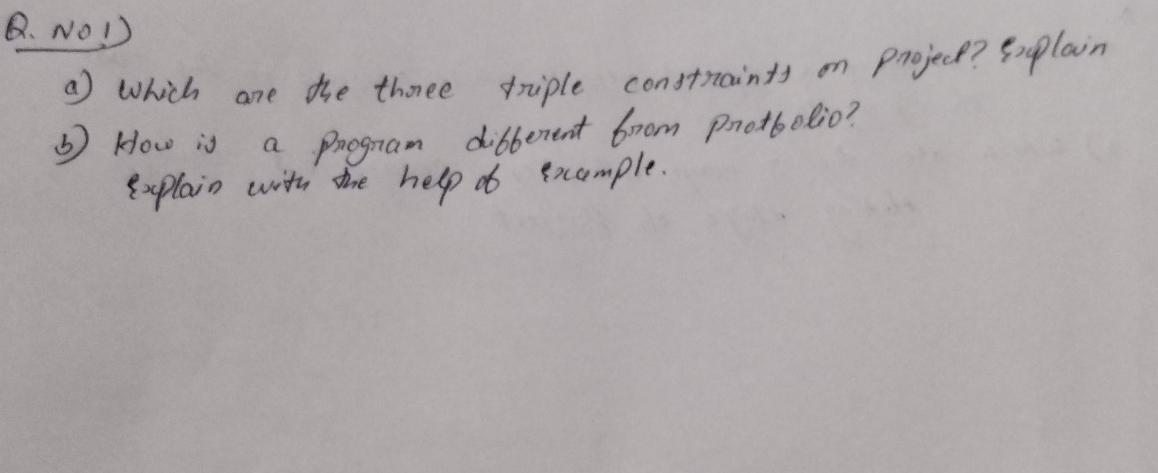 Q. No 1)
a) Which are the three triple constraints on project? Explain
b) How is a program different from protfolio?
Explain with the help of Example.